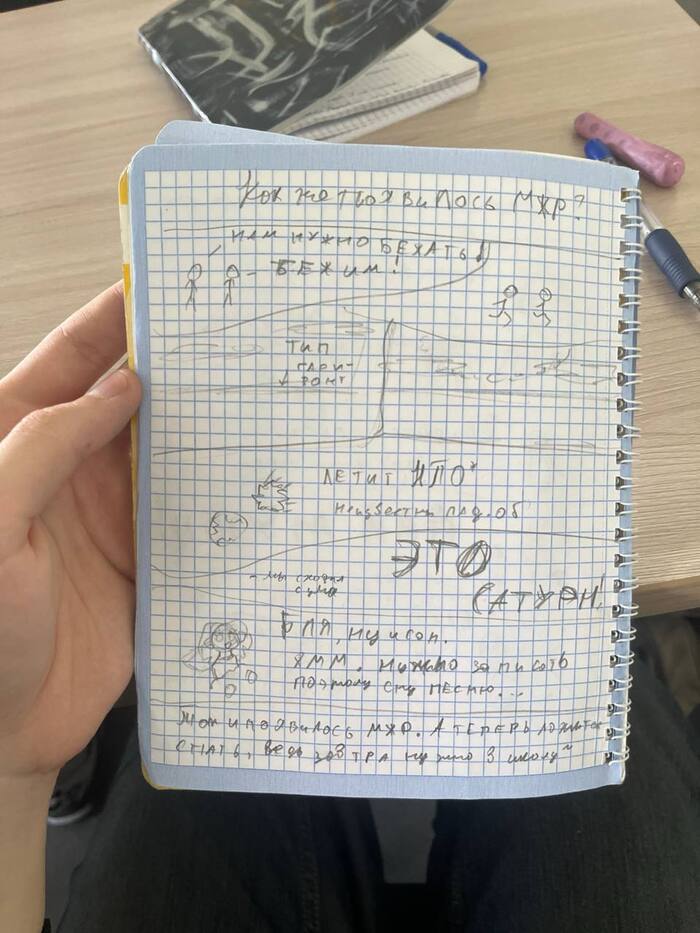 Как же появилось МЖР?
НАМ НУЖНО БЕЖАТЬ!
- БЕЖИМ!
ТИП
ГОРИ-
ЗОНТ
ЛЕТИТ НПО*
Неизвестн. плд. об
ЭТО
САТУРН!
- мы сходил
с ума
БЛЯ, ну и сон.
ХММ. нужно записать
поэтому сну ПЕСНЮ...
появилось МЖР. А ТЕПЕРЬ ложитесь
СПАТЬ, ведь завтра нужно в школу~